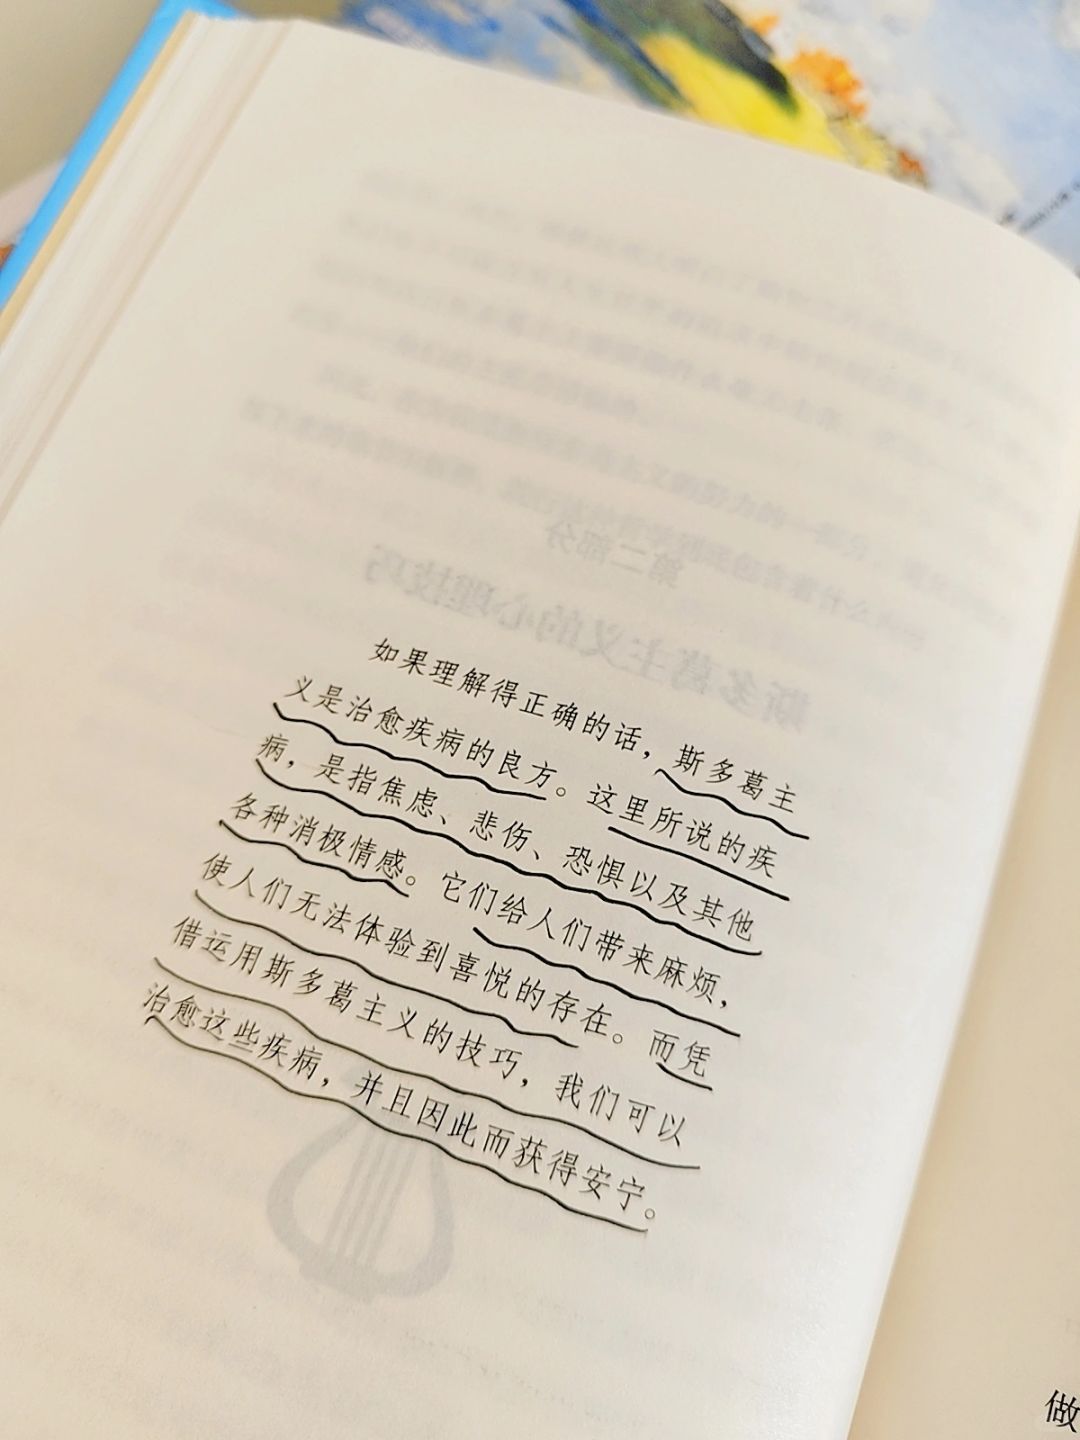 如果理解得正确的话，斯多葛主
义是治愈疾病的良方。这里所说的疾
病，是指焦虑、悲伤、恐惧以及其他
各种消极情感。它们给人们带来麻烦，
使人们无法体验到喜悦的存在。而凭
借运用斯多葛主义的技巧，我们可以
治愈这些疾病，并且因此而获得安宁。
第二部分
斯多葛主义的心理技巧
做